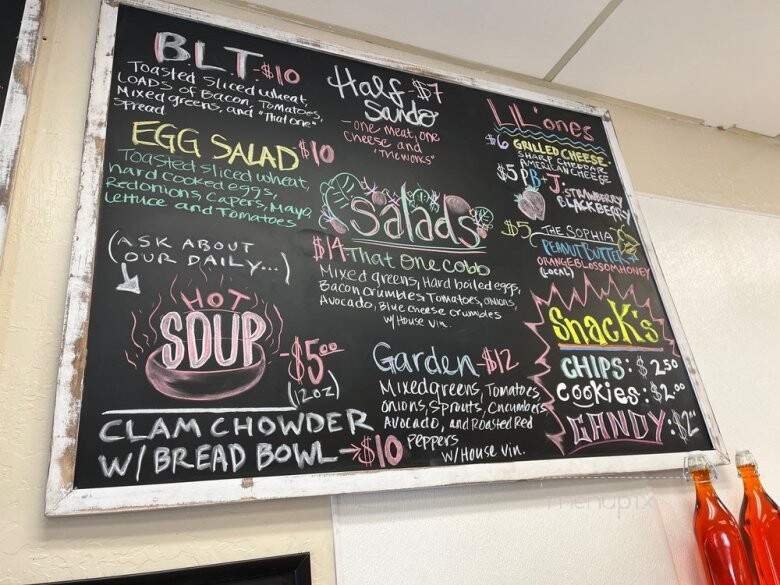 B.L.T. - $10
Toasted Sliced wheat,
LOADS of Bacon, Tomatoes,
Mixed greens, and "That one"
Spread
EGG SALAD $10
Toasted sliced wheat,
hard cooked eggs,
Red onions, Capers, Mayo
Lettuce and Tomatoes
(ASK ABOUT
OUR DAILY...)
HOT
SOUP
- $5.00
(12oz)
CLAM CHOWDER
W/ BREAD BOWL → $10
Half - $7
Sando
- one meat, one
cheese and
"The works"
Salads
$14 - That one cobb
Mixed greens, Hard boiled eggs,
Bacon crumbles Tomatoes, onions,
Avocado, Blue cheese crumbles
w/ House Vin.
Garden - $12
Mixed greens, Tomatoes
Onions, Sprouts, Cucumbers
Avocado, and Roasted Red
Peppers
w/ House Vin.
LIL' ones
$6 GRILLED CHEESE -
SHARP CHEDDAR
AMERICAN CHEESE
$5 PB-J: STRAWBERRY
BLACKBERRY
$5 THE SOPHIA
PEANUT BUTTER
ORANGE BLOSSOM HONEY
(LOCAL)
Snack's
CHIPS: $2.50
COOKIES: $2.00
CANDY: $2